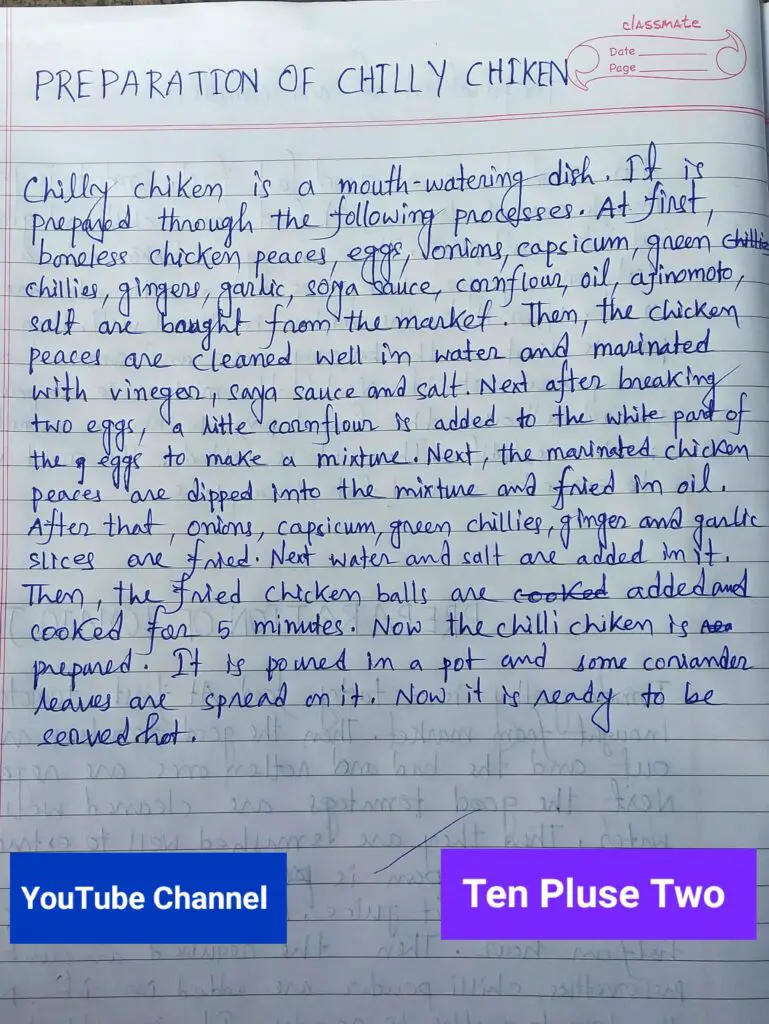 classmate
Date
Page
PREPARATION OF CHILLY CHIKEN
Chilly chiken is a mouth-watering dish. It is
prepared through the following processes. At first,
boneless chicken peaces, eggs, onions, capsicum, green chillie
chillies, gingers, garlic, soya sauce, cornflour, oil, ajinomoto,
salt are bought from the market. Then, the chicken
peaces are cleaned well in water and marinated
with vineger, soya sauce and salt. Next after breaking
two eggs, a litte cornflour is added to the white part of
the eggs to make a mixture. Next, the marinated chicken
peaces are dipped into the mixture and fried in oil.
After that, onions, capsicum, green chillies, ginger and garlic
slices are fried. Next water and salt are added in it.
Then, the fried chicken balls are cooked added and
cooked for 5 minutes. Now the chilli chiken is
prepared. It is poured in a pot and some coriander
leaves are spread on it. Now it is ready to be
served hot.
YouTube Channel
Ten Pluse Two